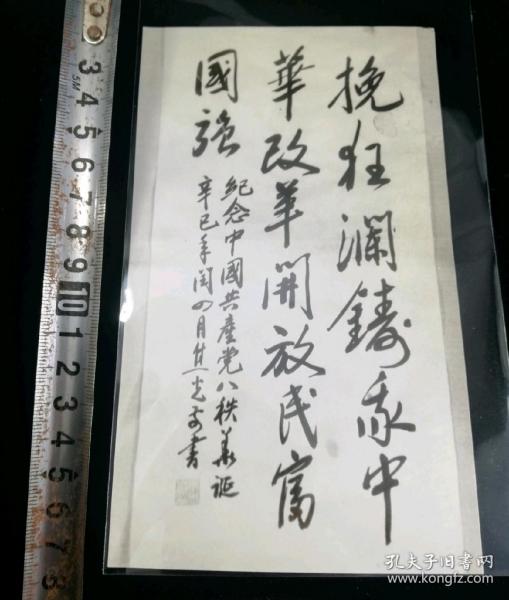 挽狂澜鑄我中
華改革開放民富
國强
紀念中國共產党八秩華誕
辛巳年闰四月
書
3 4 5 6 7 8 9 10 1 2 3 4 5 6 7 3
5M
孔夫子旧书网
www.kongfz.com